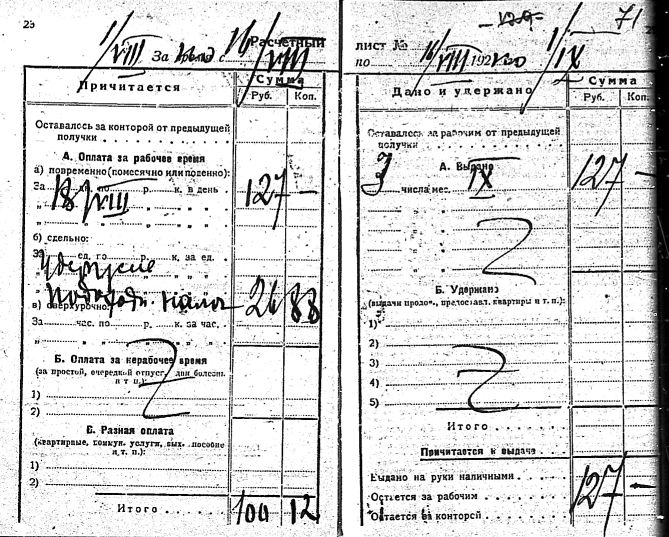 23
1/VIII За с 16/VIII
Расчетный
Причитается
Сумма
Руб. Коп.
Оставалось за конторой от предыдущей
получки
А. Оплата за рабочее время
а) повременно (помесячно или поденно):
За р. к. в день
18/VIII 127 —
б) сдельно:
За ед. по р. к. за ед.
26 88
в) сверхурочно:
За час. по р. к. за час.
Б. Оплата за нерабочее время
(за простой, очередной отпуск, дни болезни
и т. п.):
1)
2)
Б. Разная оплата
(квартирные, комун. услуги, вых. пособие
и т. п.):
1)
2)
Итого 100 12
71
лист №
по 16/VIII 192 1/IX
Дано и удержано
Сумма
Руб. Коп.
Оставалось за рабочим от предыдущей
получки
А. Выдано
3 числа мес. IX 127 —
Б. Удержано
(выдачи продов., предоставл. квартиры и т. п.):
1)
2)
3)
4)
5)
Итого
Причитается к выдаче
Выдано на руки наличными
Остается за рабочим 127 —
Остается за конторой